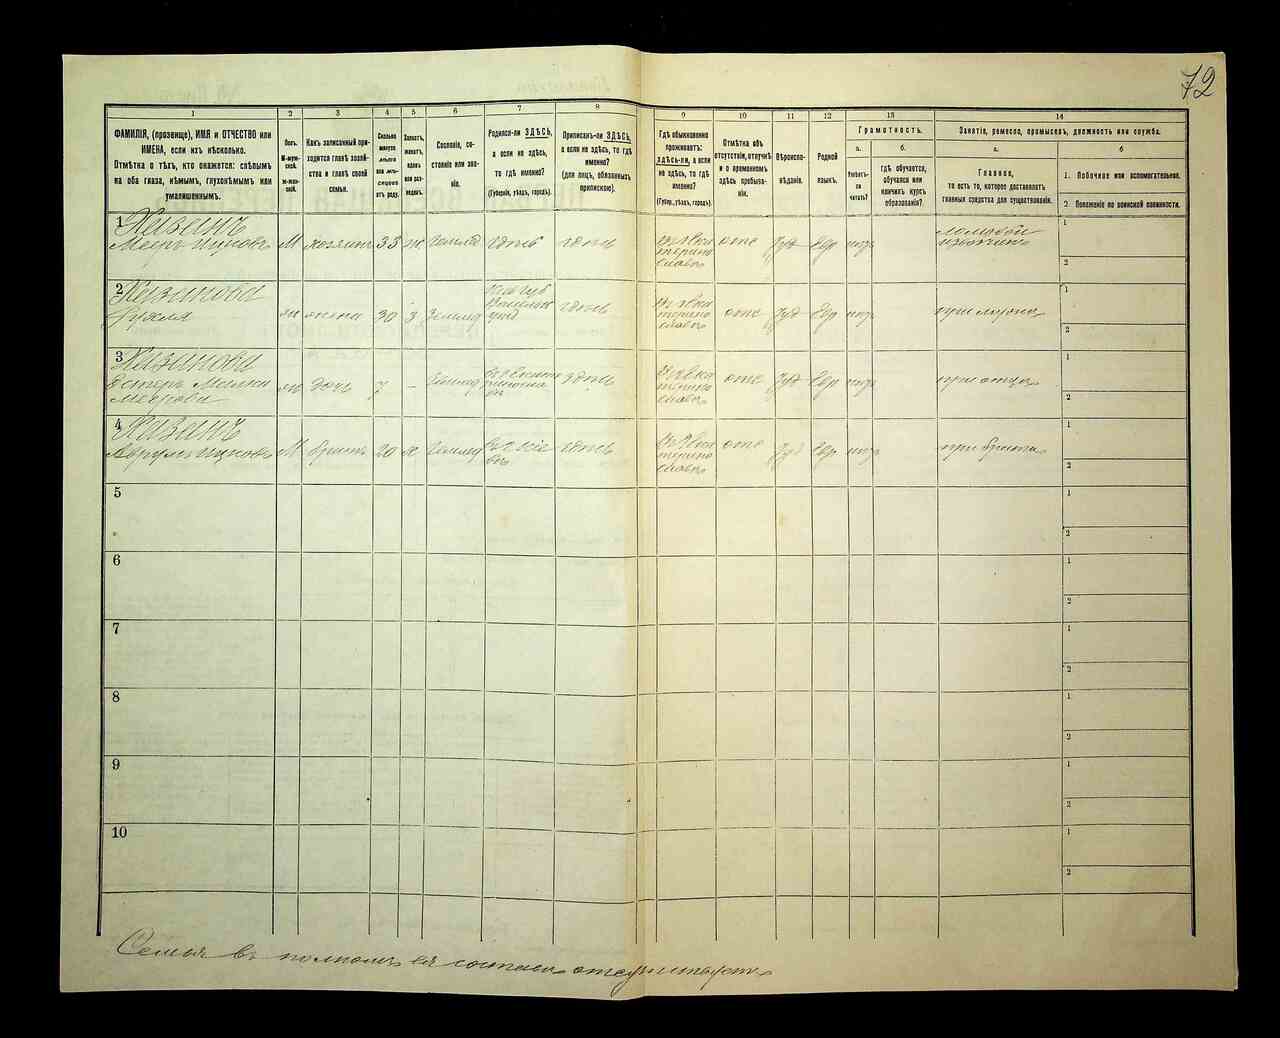 72
1
2
3
4
5
6
7
8
9
10
11
12
13
14
ФАМИЛІЯ, (прозвище), ИМЯ и ОТЧЕСТВО или ИМЕНА, если ихъ нѣсколько.
Отмѣтка о тѣхъ, кто окажется: слѣпымъ на оба глаза, нѣмымъ, глухонѣмымъ или умалишеннымъ.
Полъ.
М-мужской.
Ж-женскій.
Какъ записанный приходится главѣ хозяйства и главѣ своей семьи.
Сколько минуло лѣтъ или мѣсяцевъ отъ роду.
Холостъ, женатъ, вдовъ или разведенъ.
Сословіе, состояніе или званіе.
Родился-ли ЗДѢСЬ, а если не здѣсь, то гдѣ именно?
(Губернія, уѣздъ, городъ).
Приписанъ-ли ЗДѢСЬ, а если не здѣсь, то гдѣ именно?
(для лицъ, обязанныхъ припискою).
Гдѣ обыкновенно проживаетъ: здѣсь-ли, а если не здѣсь, то гдѣ именно?
(Губер., уѣздъ, городъ).
Отмѣтка объ отсутствіи, отлучкѣ и о временномъ здѣсь пребываніи.
Вѣроисповѣданіе.
Родной языкъ.
Грамотность.
а.
Умѣетъ-ли читать?
б.
гдѣ обучается, обучался или кончилъ курсъ образованія?
Занятіе, ремесло, промыселъ, должность или служба.
а.
Главное,
то есть то, которое доставляетъ главныя средства для существованія.
б
1. Побочное или вспомогательное.
2. Положеніе по воинской повинности.
1
Хазанъ
Мееръ Ицковъ
М
хозяинъ
33
ж
здѣсь
здѣсь
отс
Іуд
Евр
нѣтъ
ломовой
извозчикъ
1
2
2
Хазанова
жена
30
з
уѣзд
здѣсь
отс
Іуд
Евр
нѣтъ
при мужѣ
1
2
3
Хазанова
дочь
7
-
здѣсь
отс
Іуд
Евр
нѣтъ
при отцѣ
1
2
4
Хазанъ
Аврумъ Ицковъ
М
братъ
20
х
здѣсь
отс
Іуд
Евр
нѣтъ
при братѣ
1
2
5
1
2
6
1
2
7
1
2
8
1
2
9
1
2
10
1
2
Семья въ полномъ ея составѣ отсутствуетъ